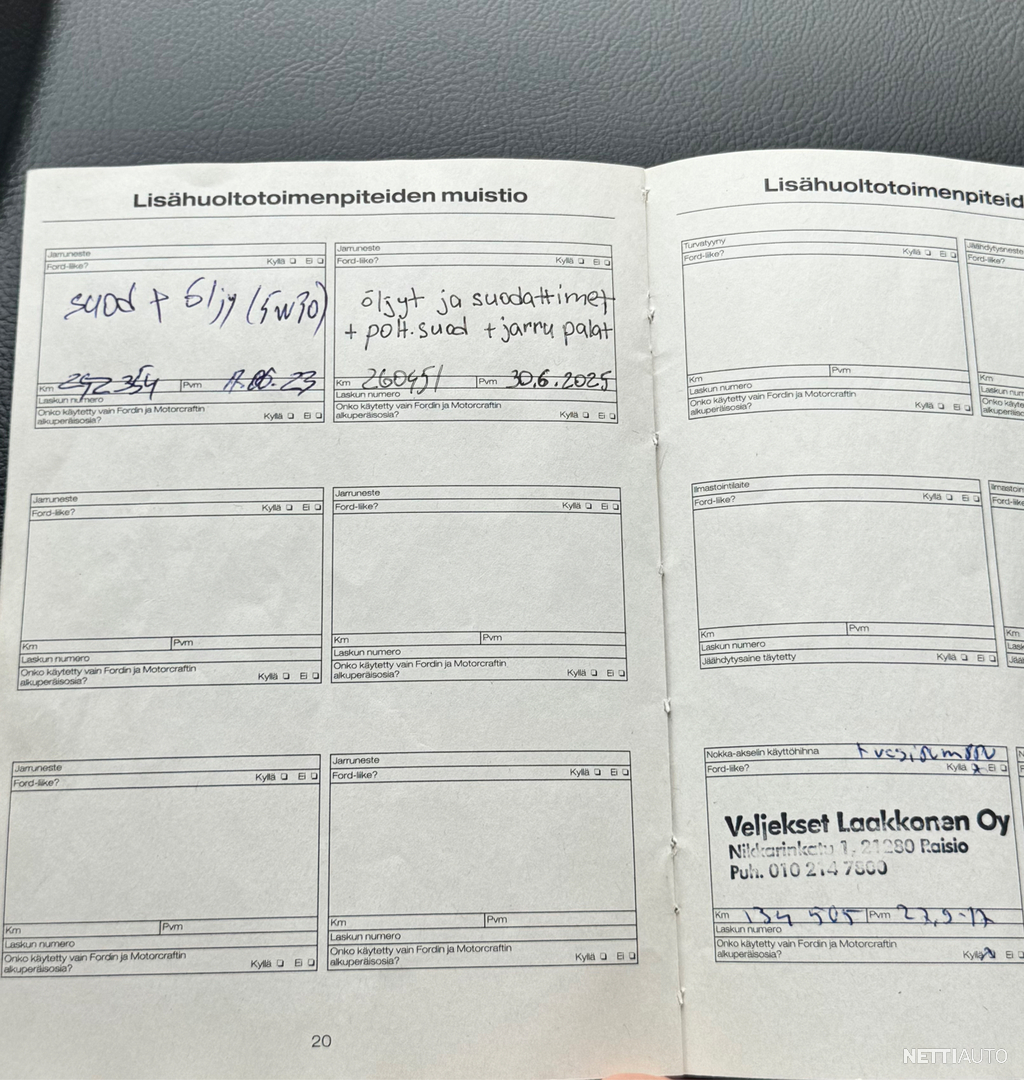 Lisähuoltotoimenpiteiden muistio
Jarruneste
Ford-like? Kyllä ❏ Ei ❏
suod + öljy (5w30)
Km 252 354 Pvm .06.23
Laskun numero
Onko käytetty vain Fordin ja Motorcraftin
alkuperäisosia? Kyllä ❏ Ei ❏
Jarruneste
Ford-like? Kyllä ❏ Ei ❏
öljyt ja suodattimet
+ polt.suod + jarru palat
Km 260451 Pvm 30.6.2025
Laskun numero
Onko käytetty vain Fordin ja Motorcraftin
alkuperäisosia? Kyllä ❏ Ei ❏
Jarruneste
Ford-like? Kyllä ❏ Ei ❏
Km Pvm
Laskun numero
Onko käytetty vain Fordin ja Motorcraftin
alkuperäisosia? Kyllä ❏ Ei ❏
Jarruneste
Ford-like? Kyllä ❏ Ei ❏
Km Pvm
Laskun numero
Onko käytetty vain Fordin ja Motorcraftin
alkuperäisosia? Kyllä ❏ Ei ❏
Jarruneste
Ford-like? Kyllä ❏ Ei ❏
Km Pvm
Laskun numero
Onko käytetty vain Fordin ja Motorcraftin
alkuperäisosia? Kyllä ❏ Ei ❏
Jarruneste
Ford-like? Kyllä ❏ Ei ❏
Km Pvm
Laskun numero
Onko käytetty vain Fordin ja Motorcraftin
alkuperäisosia? Kyllä ❏ Ei ❏
20
Lisähuoltotoimenpiteid
Turvatyyny
Ford-like? Kyllä ❏ Ei ❏
Km Pvm
Laskun numero
Onko käytetty vain Fordin ja Motorcraftin
alkuperäisosia? Kyllä ❏ Ei ❏
Jäähdytysneste
Ford-like?
Km
Laskun num
Onko käyte
alkuperäiso
Ilmastointilaite
Ford-like? Kyllä ❏ Ei ❏
Km Pvm
Laskun numero
Jäähdytysaine täytetty Kyllä ❏ Ei ❏
Ilmastoin
Ford-like
Km
Lask
Jääh
Nokka-akselin käyttöhihna
Ford-like? Kyllä Ei ❏
Veljekset Laakkonen Oy
Nikkarinkatu 1, 21280 Raisio
Puh. 010 214 7800
Km 134 505 Pvm 27,9-17
Laskun numero
Onko käytetty vain Fordin ja Motorcraftin
alkuperäisosia? Kyllä Ei ❏
NETTIAUTO